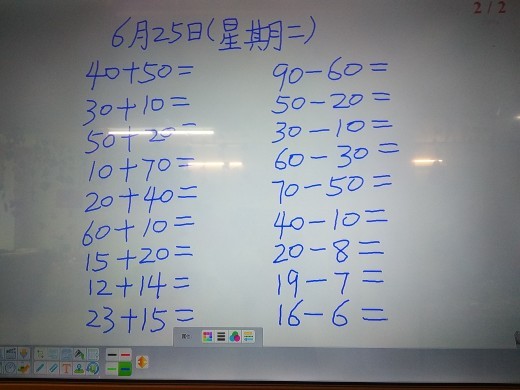 2 / 2
6月25日(星期二)
40+50=
30+10=
50+20=
10+70=
20+40=
60+10=
15+20=
12+14=
23+15=
90-60=
50-20=
30-10=
60-30=
70-50=
40-10=
20-8=
19-7=
16-6=